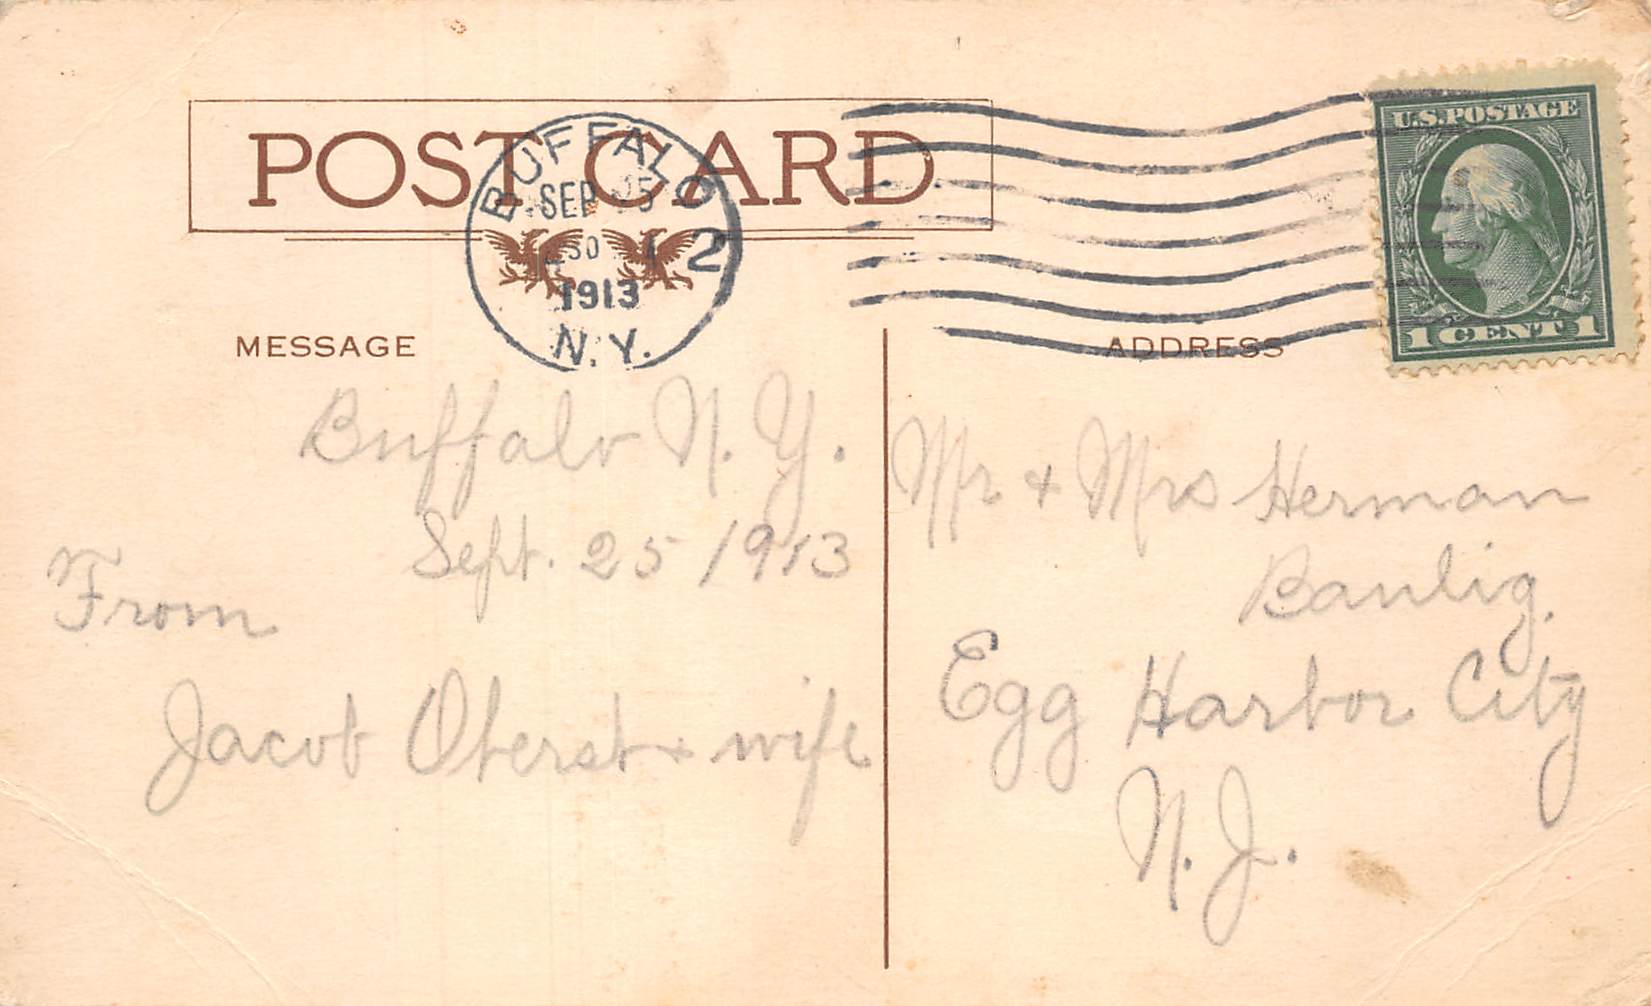 POST CARD
BUFFALO
SEP 25
30
2
1913
N.Y.
U.S. POSTAGE
1 CENT 1
MESSAGE
ADDRESS
Buffalo N.Y.
Sept. 25 1913
From
Jacob Oberst + wife
Mr + Mrs Herman
Baulig.
Egg Harbor City
N.J.